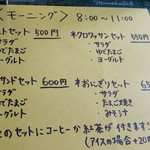 <モーニング> 8:00~11:00
トセット 500円
サラダ
ゆでたまご
ヨーグルト
*クロワッサンセット 550円
・サラダ
・ゆでたまご
・ヨーグルト
サンドセット 600円
サラダ
ヨーグルト
*おにぎりセット 65
・サラダ
・たまご焼き
・みそ汁
上のセットにコーヒーか紅茶が付きます!
(アイスの場合+20円